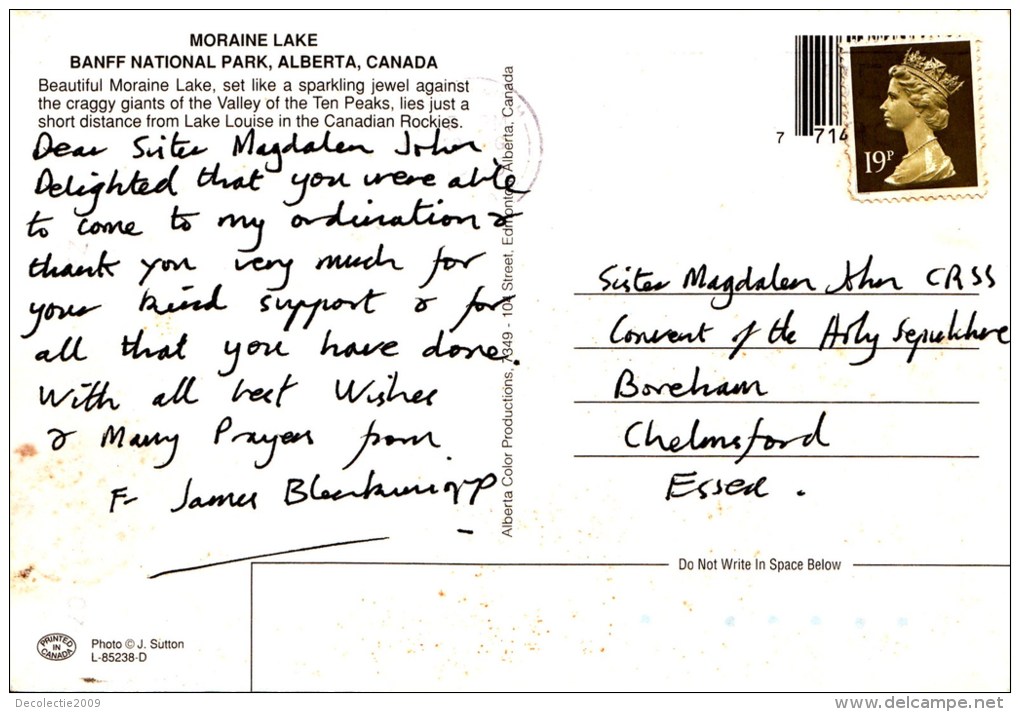 MORAINE LAKE
BANFF NATIONAL PARK, ALBERTA, CANADA
Beautiful Moraine Lake, set like a sparkling jewel against
the craggy giants of the Valley of the Ten Peaks, lies just a
short distance from Lake Louise in the Canadian Rockies.
Dear Sister Magdalen John
Delighted that you were able
to come to my ordination &
thank you very much for
your kind support & for
all that you have done.
With all best Wishes
& Many Prayers from
Fr James
Alberta Color Productions, 7349 - 104 Street, Edmonton, Alberta, Canada
7 714
19P
Sister Magdalen John CRSS
Convent of the Holy Sepulchre
Boreham
Chelmsford
Essex.
Do Not Write In Space Below
PRINTED IN CANADA
Photo © J. Sutton
L-85238-D
Decolectie2009
www.delcampe.net